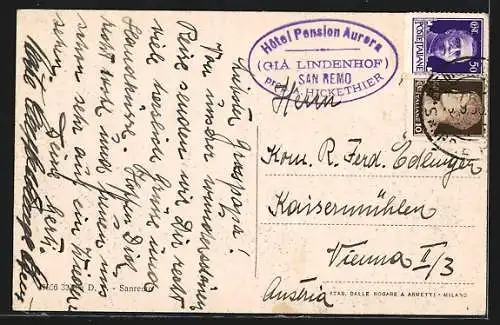 Hôtel Pension Aurora
(GIÀ LINDENHOF)
SAN REMO
prop. A. HICKETHIER
POSTE ITALIANE
50
10
Liebster Grosspapa!
Von unserer wunderschönen
Reise senden wir Dir recht
viele herzlich Grüsse und
Handküsse. Hoffen Dich
recht wohl und freuen uns
schon sehr auf ein Wieder
sehen.
Deine
Herrn
Kom. R. Ferd. Edlinger
Kaisermühlen
Vienna II/3
Austria
D. - Sanremo
STAB. DALLE NOGARE & ARMETTI - MILANO